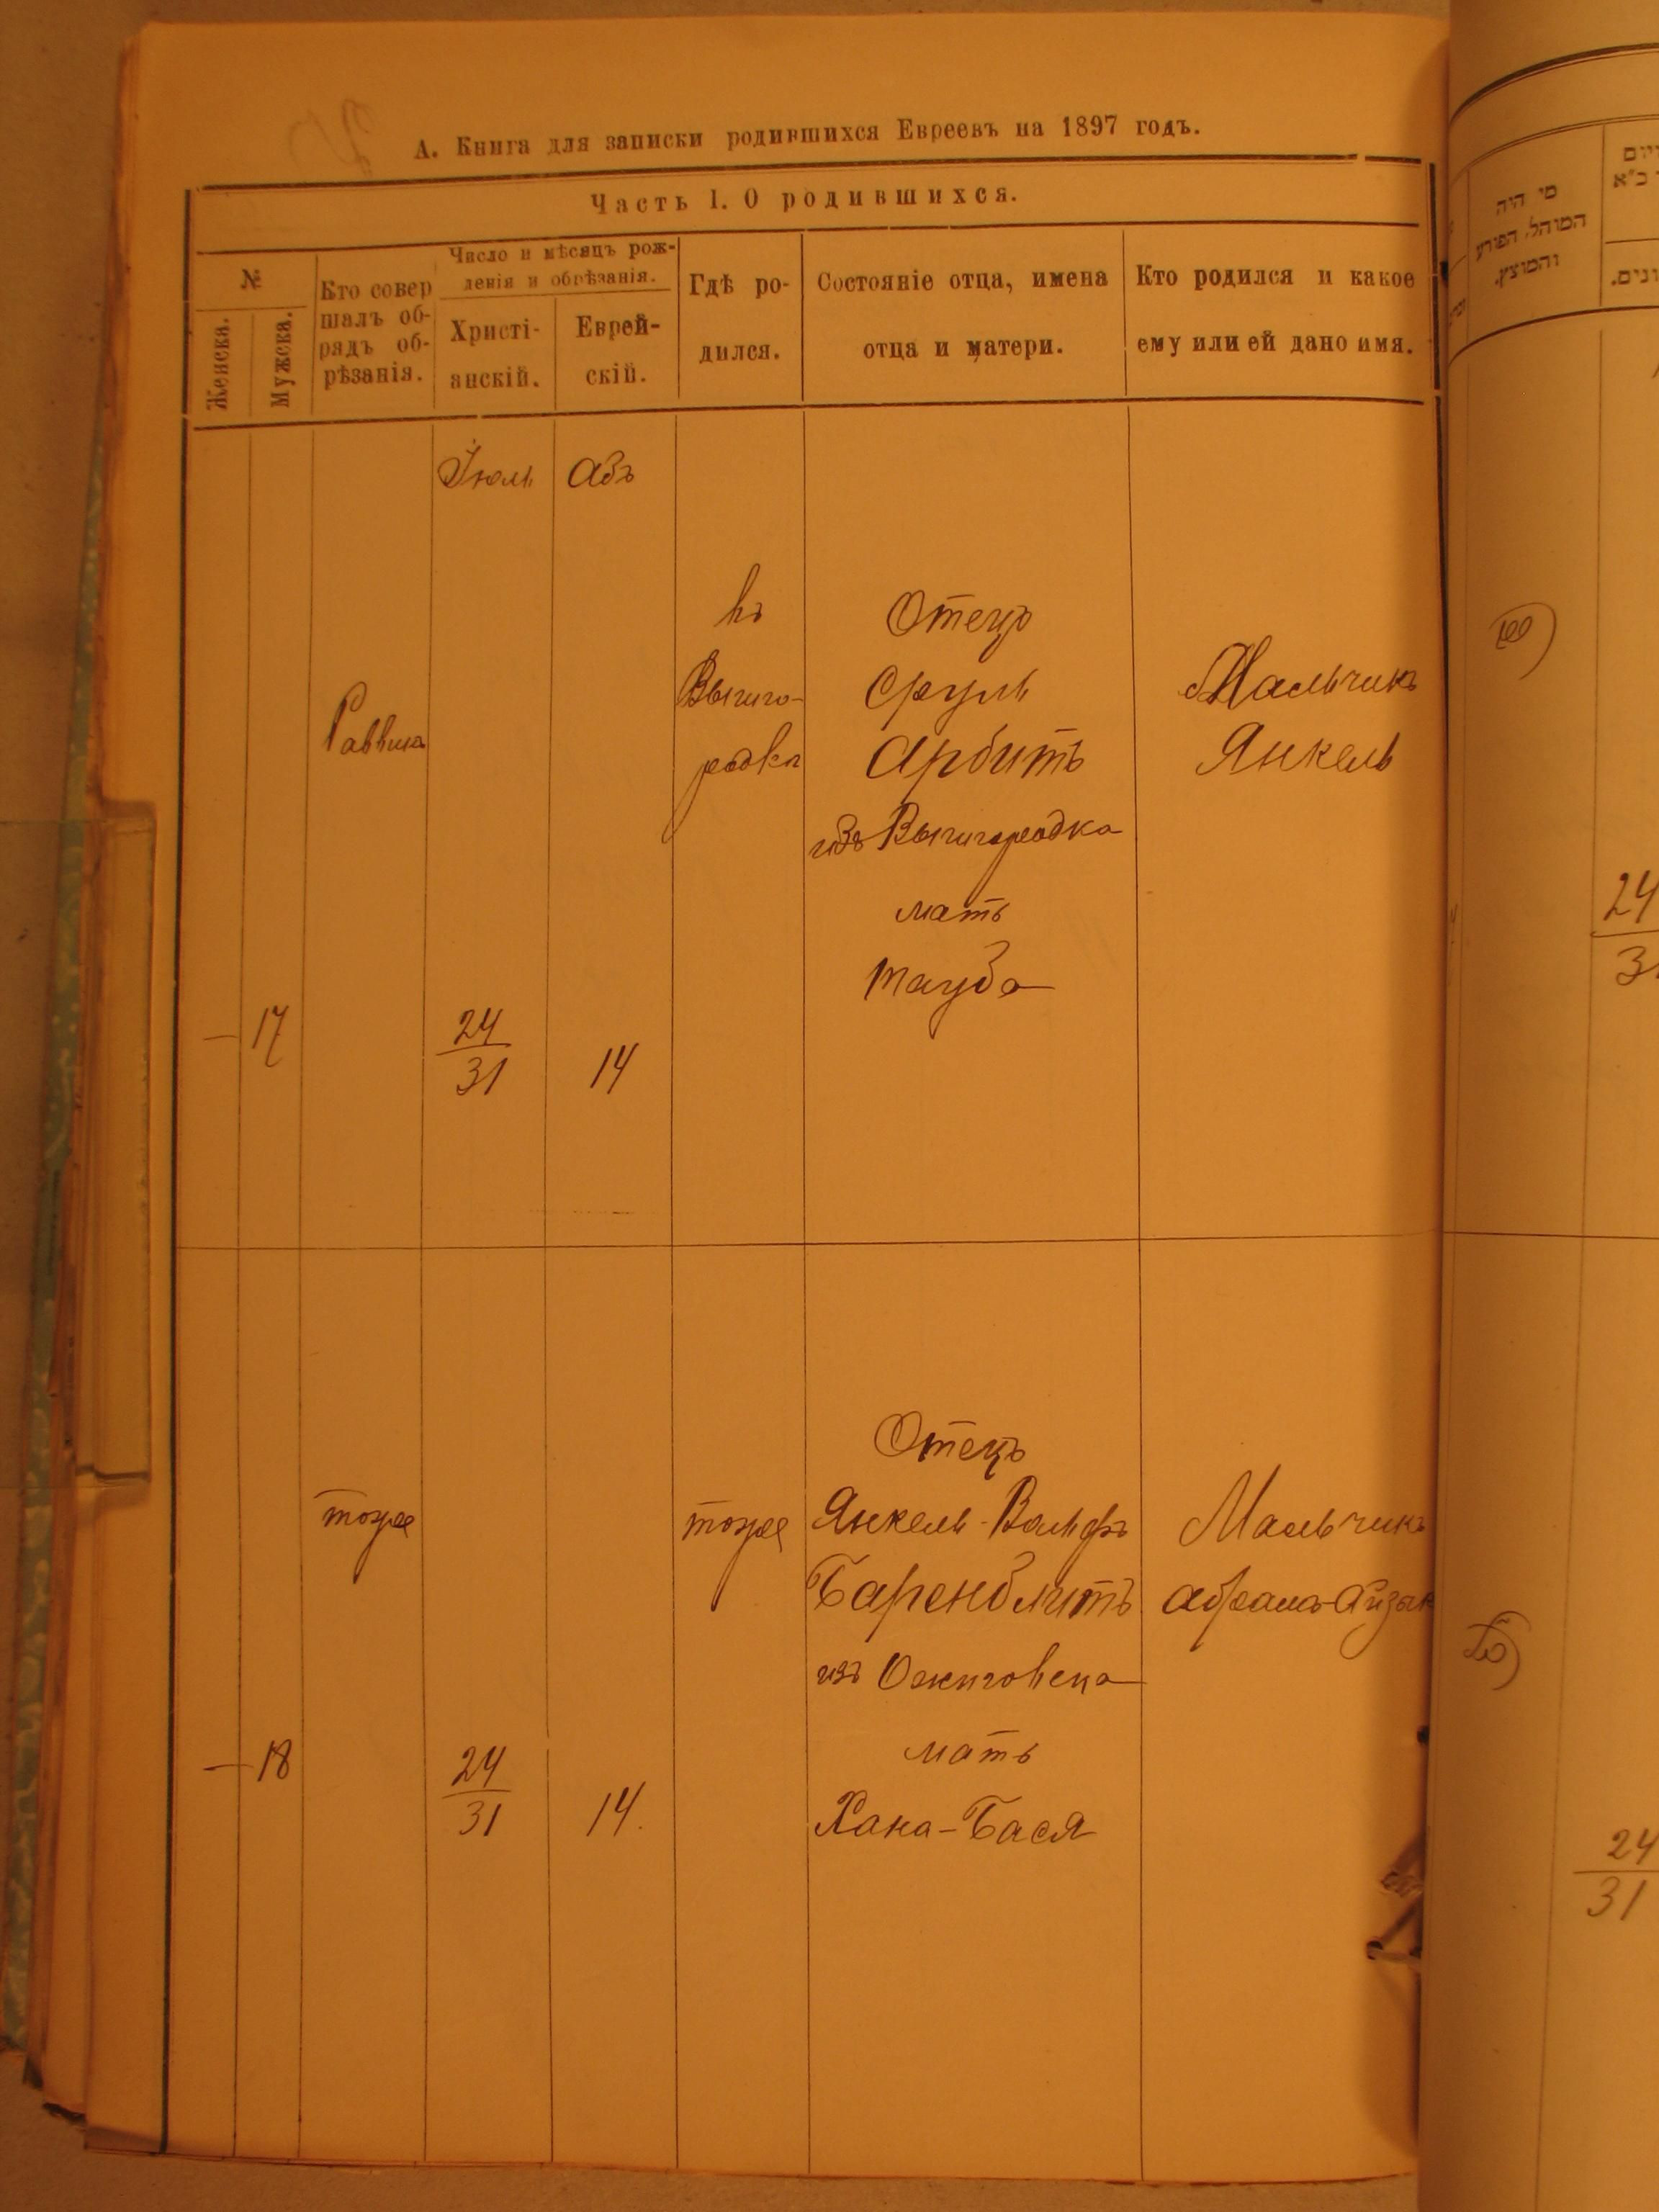 А. Книга для записки родившихся Евреевъ на 1897 годъ.
Часть 1. О родившихся.
№
Женска.
Мужска.
Кто совер
шалъ об-
рядъ об-
рѣзанія.
Число и мѣсяцъ рож-
денія и обрѣзанія.
Христі-
анскій.
Еврей-
скій.
Гдѣ ро-
дился.
Состояніе отца, имена
отца и матери.
Кто родился и какое
ему или ей дано имя.
Іюль
Абъ
—
17
Раввинъ
24
31
14
въ
Вышго-
родка
Отецъ
Сруль
Арбитъ
изъ Вышгородка
мать
Тауба
Мальчикъ
Янкель
—
18
тоже
24
31
14.
тоже
Отецъ
Янкель-Вольфъ
Баренблитъ
изъ Ожиговеца
мать
Хана-Бася
Мальчикъ
Абрамъ-Айзык
מי היה
המוהל, הפורע
והמוצץ.
24
24
31